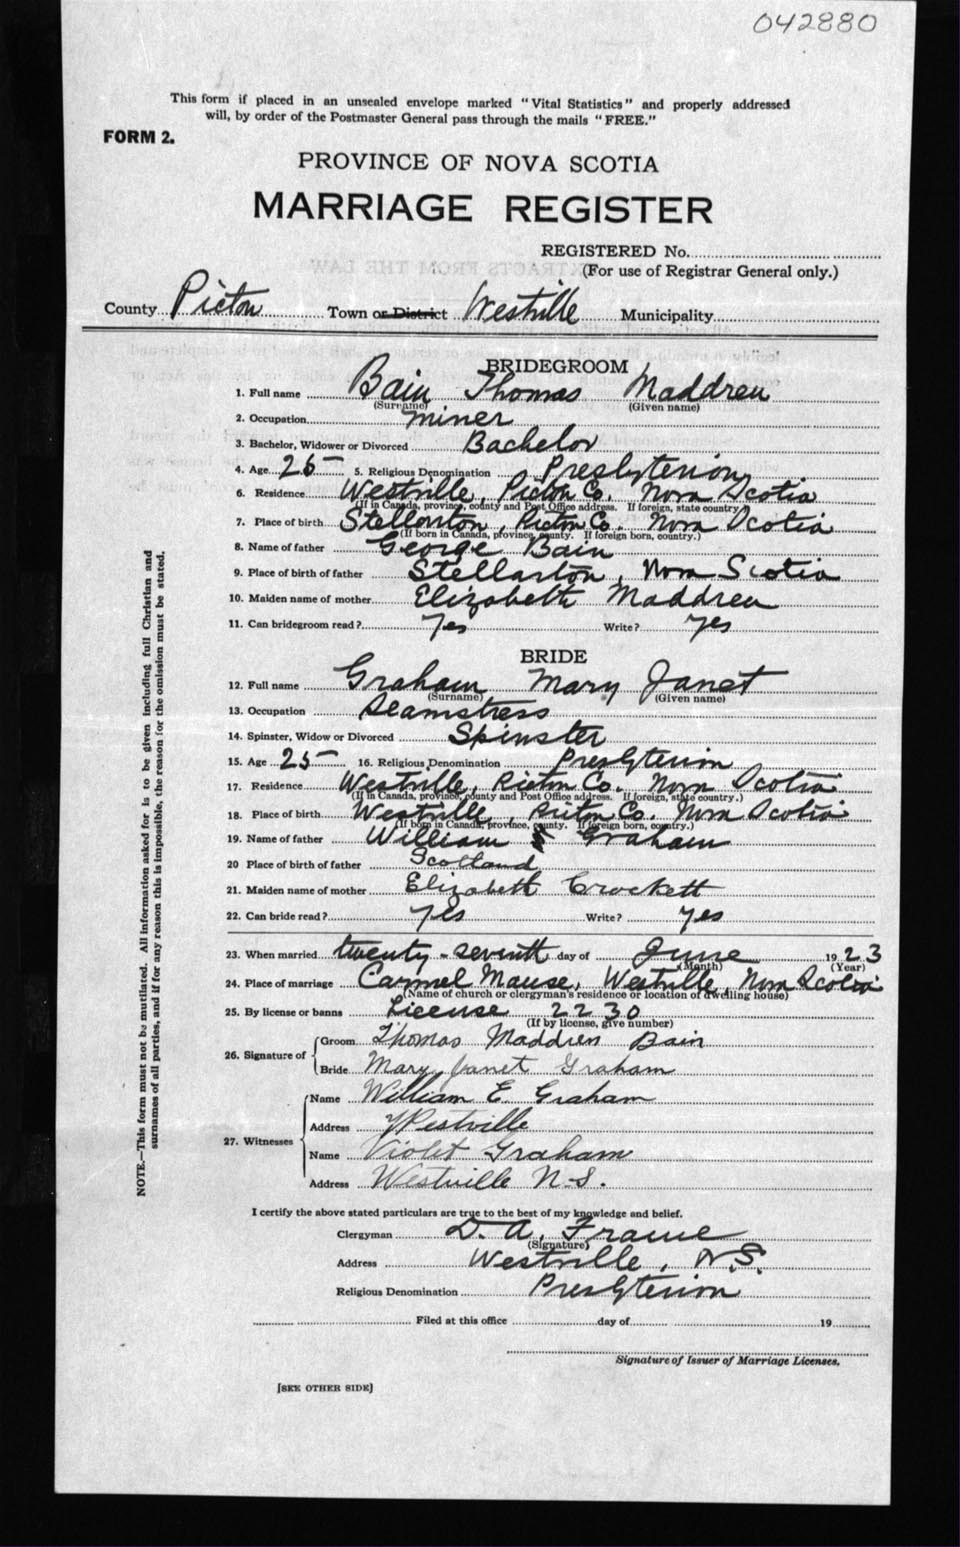 042880
This form if placed in an unsealed envelope marked "Vital Statistics" and properly addressed
will, by order of the Postmaster General pass through the mails "FREE."
FORM 2.
PROVINCE OF NOVA SCOTIA
MARRIAGE REGISTER
REGISTERED No.
(For use of Registrar General only.)
County Pictou Town or District Westville Municipality
BRIDEGROOM
1. Full name Bain Thomas Maddren
(Surname) (Given name)
2. Occupation miner
3. Bachelor, Widower or Divorced Bachelor
4. Age 26 5. Religious Denomination Presbyterion
6. Residence Westville, Pictou Co. Nova Scotia
(If in Canada, province, county and Post Office address. If foreign, state country.)
7. Place of birth Stellarton, Pictou Co. Nova Scotia
(If born in Canada, province, county. If foreign born, country.)
8. Name of father George Bain
9. Place of birth of father Stellarton, Nova Scotia
10. Maiden name of mother Elizabeth Maddren
11. Can bridegroom read? Yes Write? yes
BRIDE
12. Full name Graham Mary Janet
(Surname) (Given name)
13. Occupation Seamstress
14. Spinster, Widow or Divorced Spinster
15. Age 25 16. Religious Denomination Presbyterion
17. Residence Westville, Pictou Co. Nova Scotia
(If in Canada, province, county and Post Office address. If foreign, state country.)
18. Place of birth Westville, Pictou Co. Nova Scotia
(If born in Canada, province, county. If foreign born, country.)
19. Name of father William Graham
20 Place of birth of father Scotland
21. Maiden name of mother Elizabeth Crockett
22. Can bride read? yes Write? yes
23. When married twenty-seventh day of June 1923
(Month) (Year)
24. Place of marriage Carmel Manse, Westville, Nova Scotia
(Name of church or clergyman's residence or location of dwelling house)
25. By license or banns License 2230
(If by license, give number)
26. Signature of
Groom Thomas Maddren Bain
Bride Mary Janet Graham
27. Witnesses
Name William E. Graham
Address Westville
Name Violet Graham
Address Westville N.S.
I certify the above stated particulars are true to the best of my knowledge and belief.
Clergyman D. A. Frame
(Signature)
Address Westville, N.S.
Religious Denomination Presbyterion
Filed at this office day of 19
Signature of Issuer of Marriage Licenses.
[SEE OTHER SIDE]
NOTE.—This form must not be mutilated. All information asked for is to be given including full Christian and
surnames of all parties, and if for any reason this is impossible, the reason for the omission must be stated.